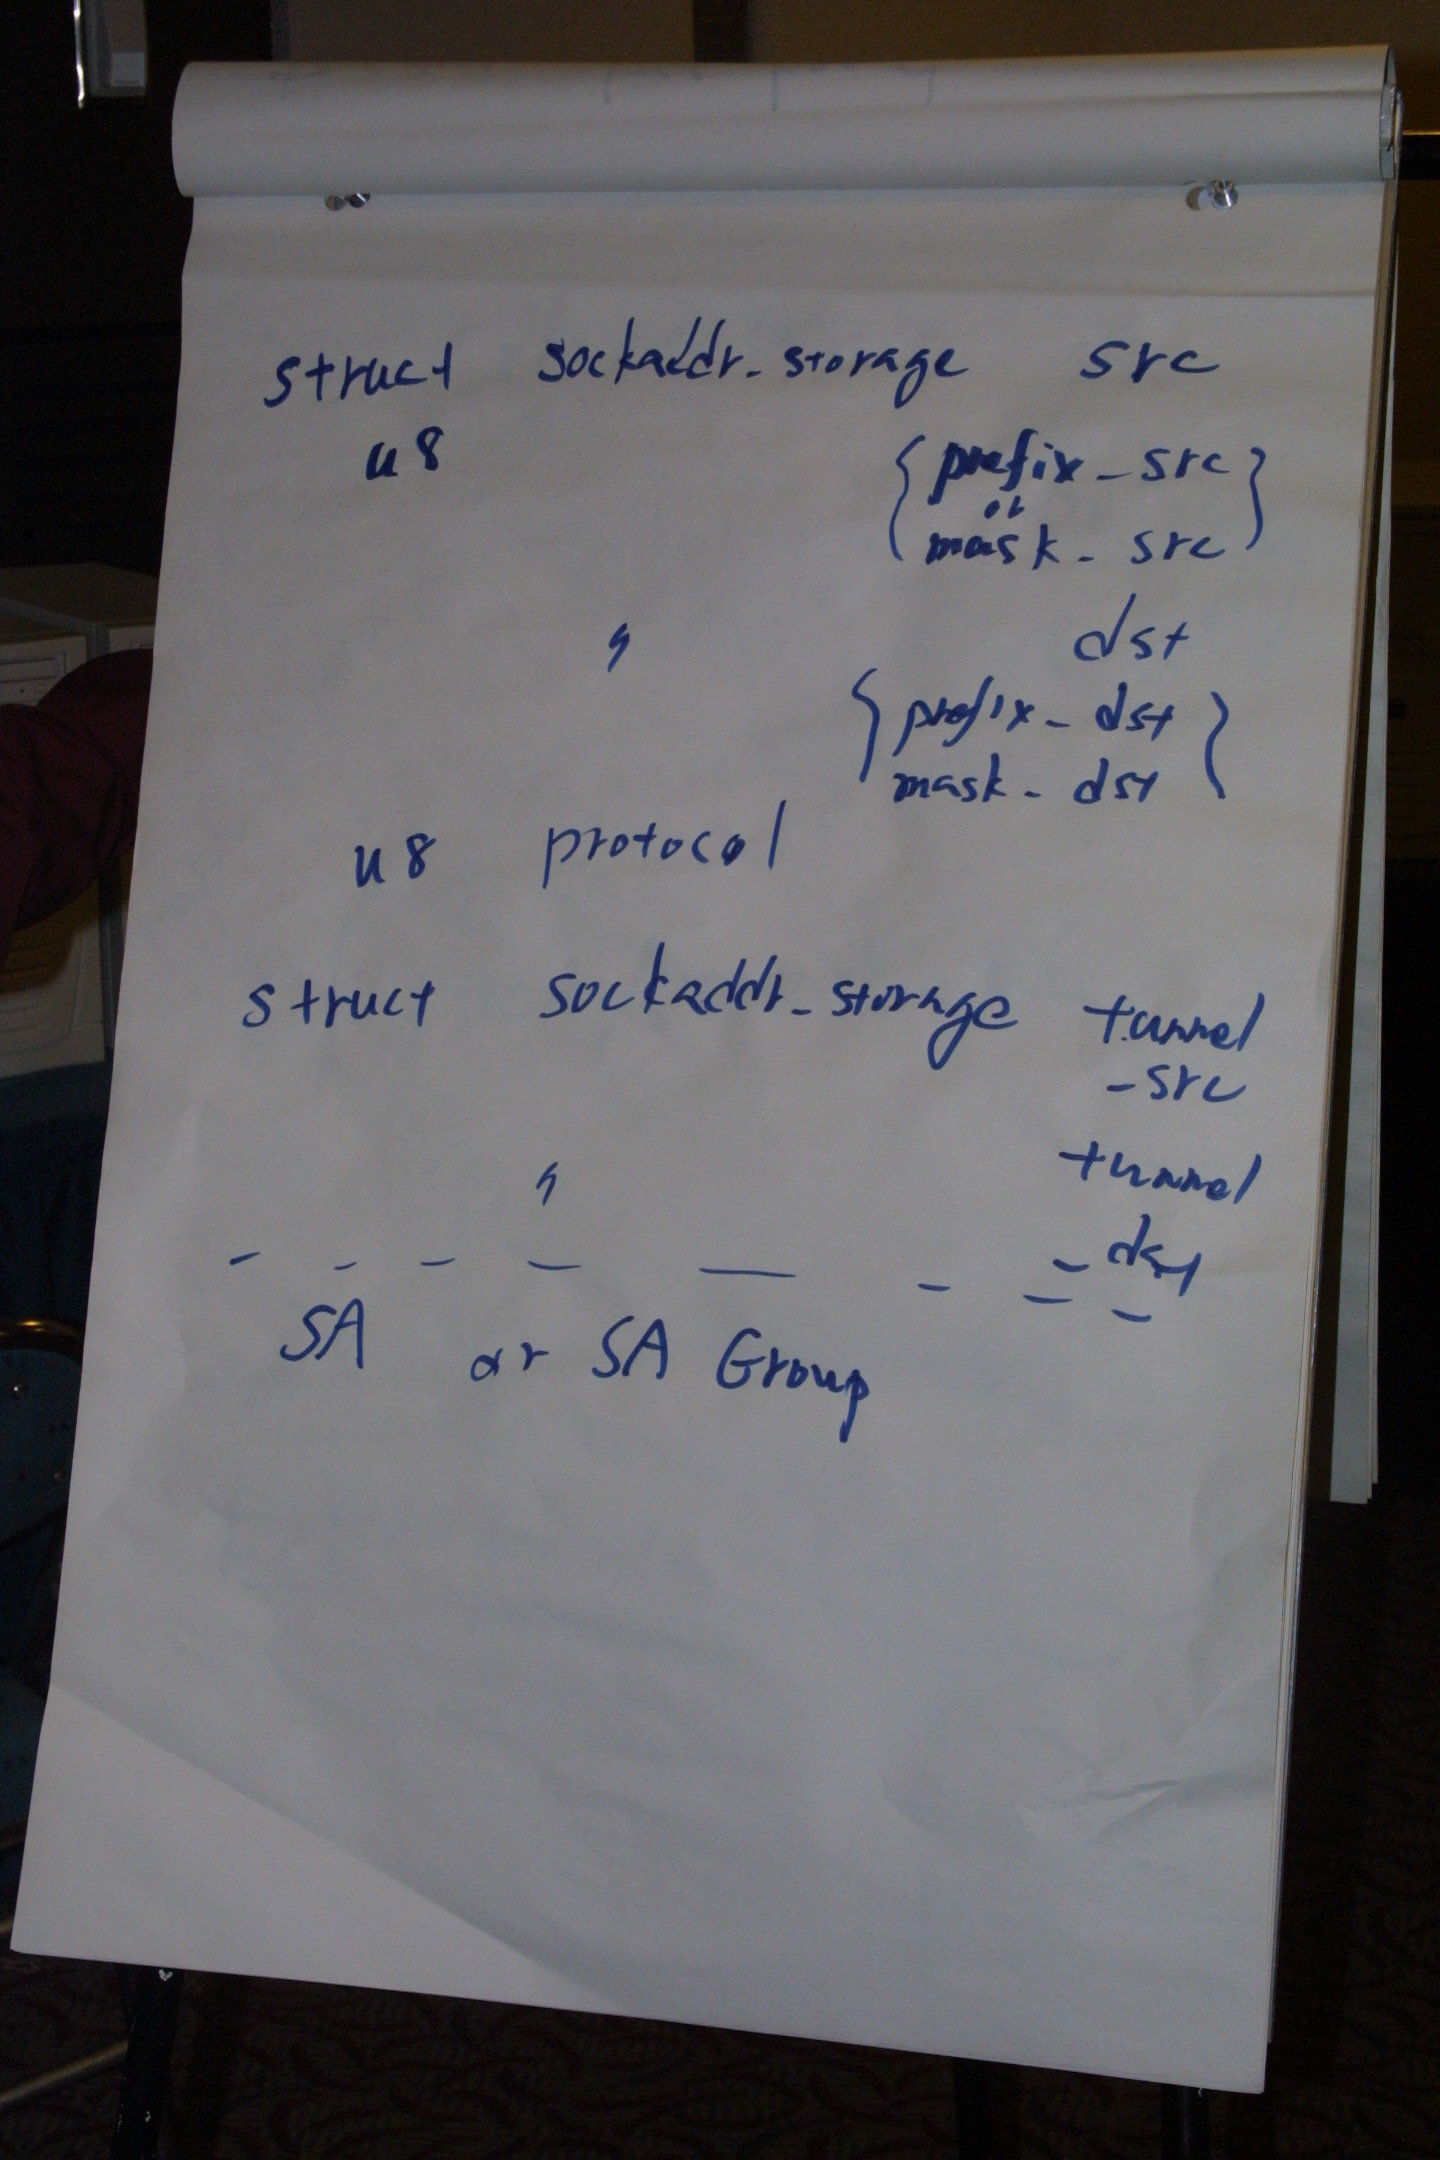 struct sockaddr_storage src
u8 { prefix_src }
or
mask_src
〃 dst
{ prefix_dst }
mask_dst
u8 protocol
struct sockaddr_storage tunnel
_src
〃 tunnel
_dst
SA or SA Group